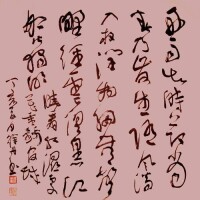 好雨知時節當
春乃發生隨風潛
入夜潤物細無聲
野徑雲俱黑江
船火獨明
曉看紅濕處
花重錦官城